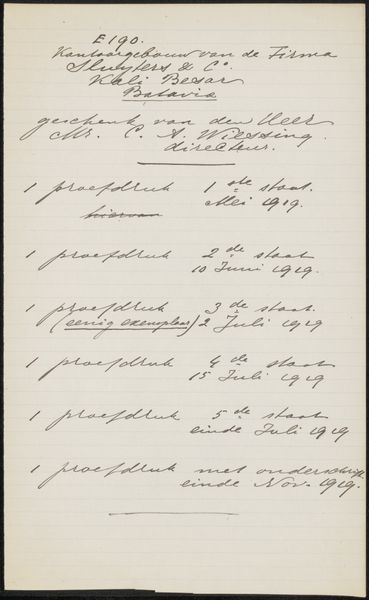 E 190.
Kantoorgebouw van de Firma
Sluyters & Co.
Kali Besar
Batavia
geschenk van den Heer
Mr. C. A. Wiessing.
directeur.
1 proefdruk 1 ste staat.
hiervan Mei 1919.
1 proefdruk 2 de staat
10 Juni 1919.
1 proefdruk 3 de staat.
(eenig exemplaar) 2 Juli 1919
1 proefdruk 4 de staat
15 Juli 1919
1 proefdruk 5 de staat
einde Juli 1919
1 proefdruk met onderschrift.
einde Nov. 1919.